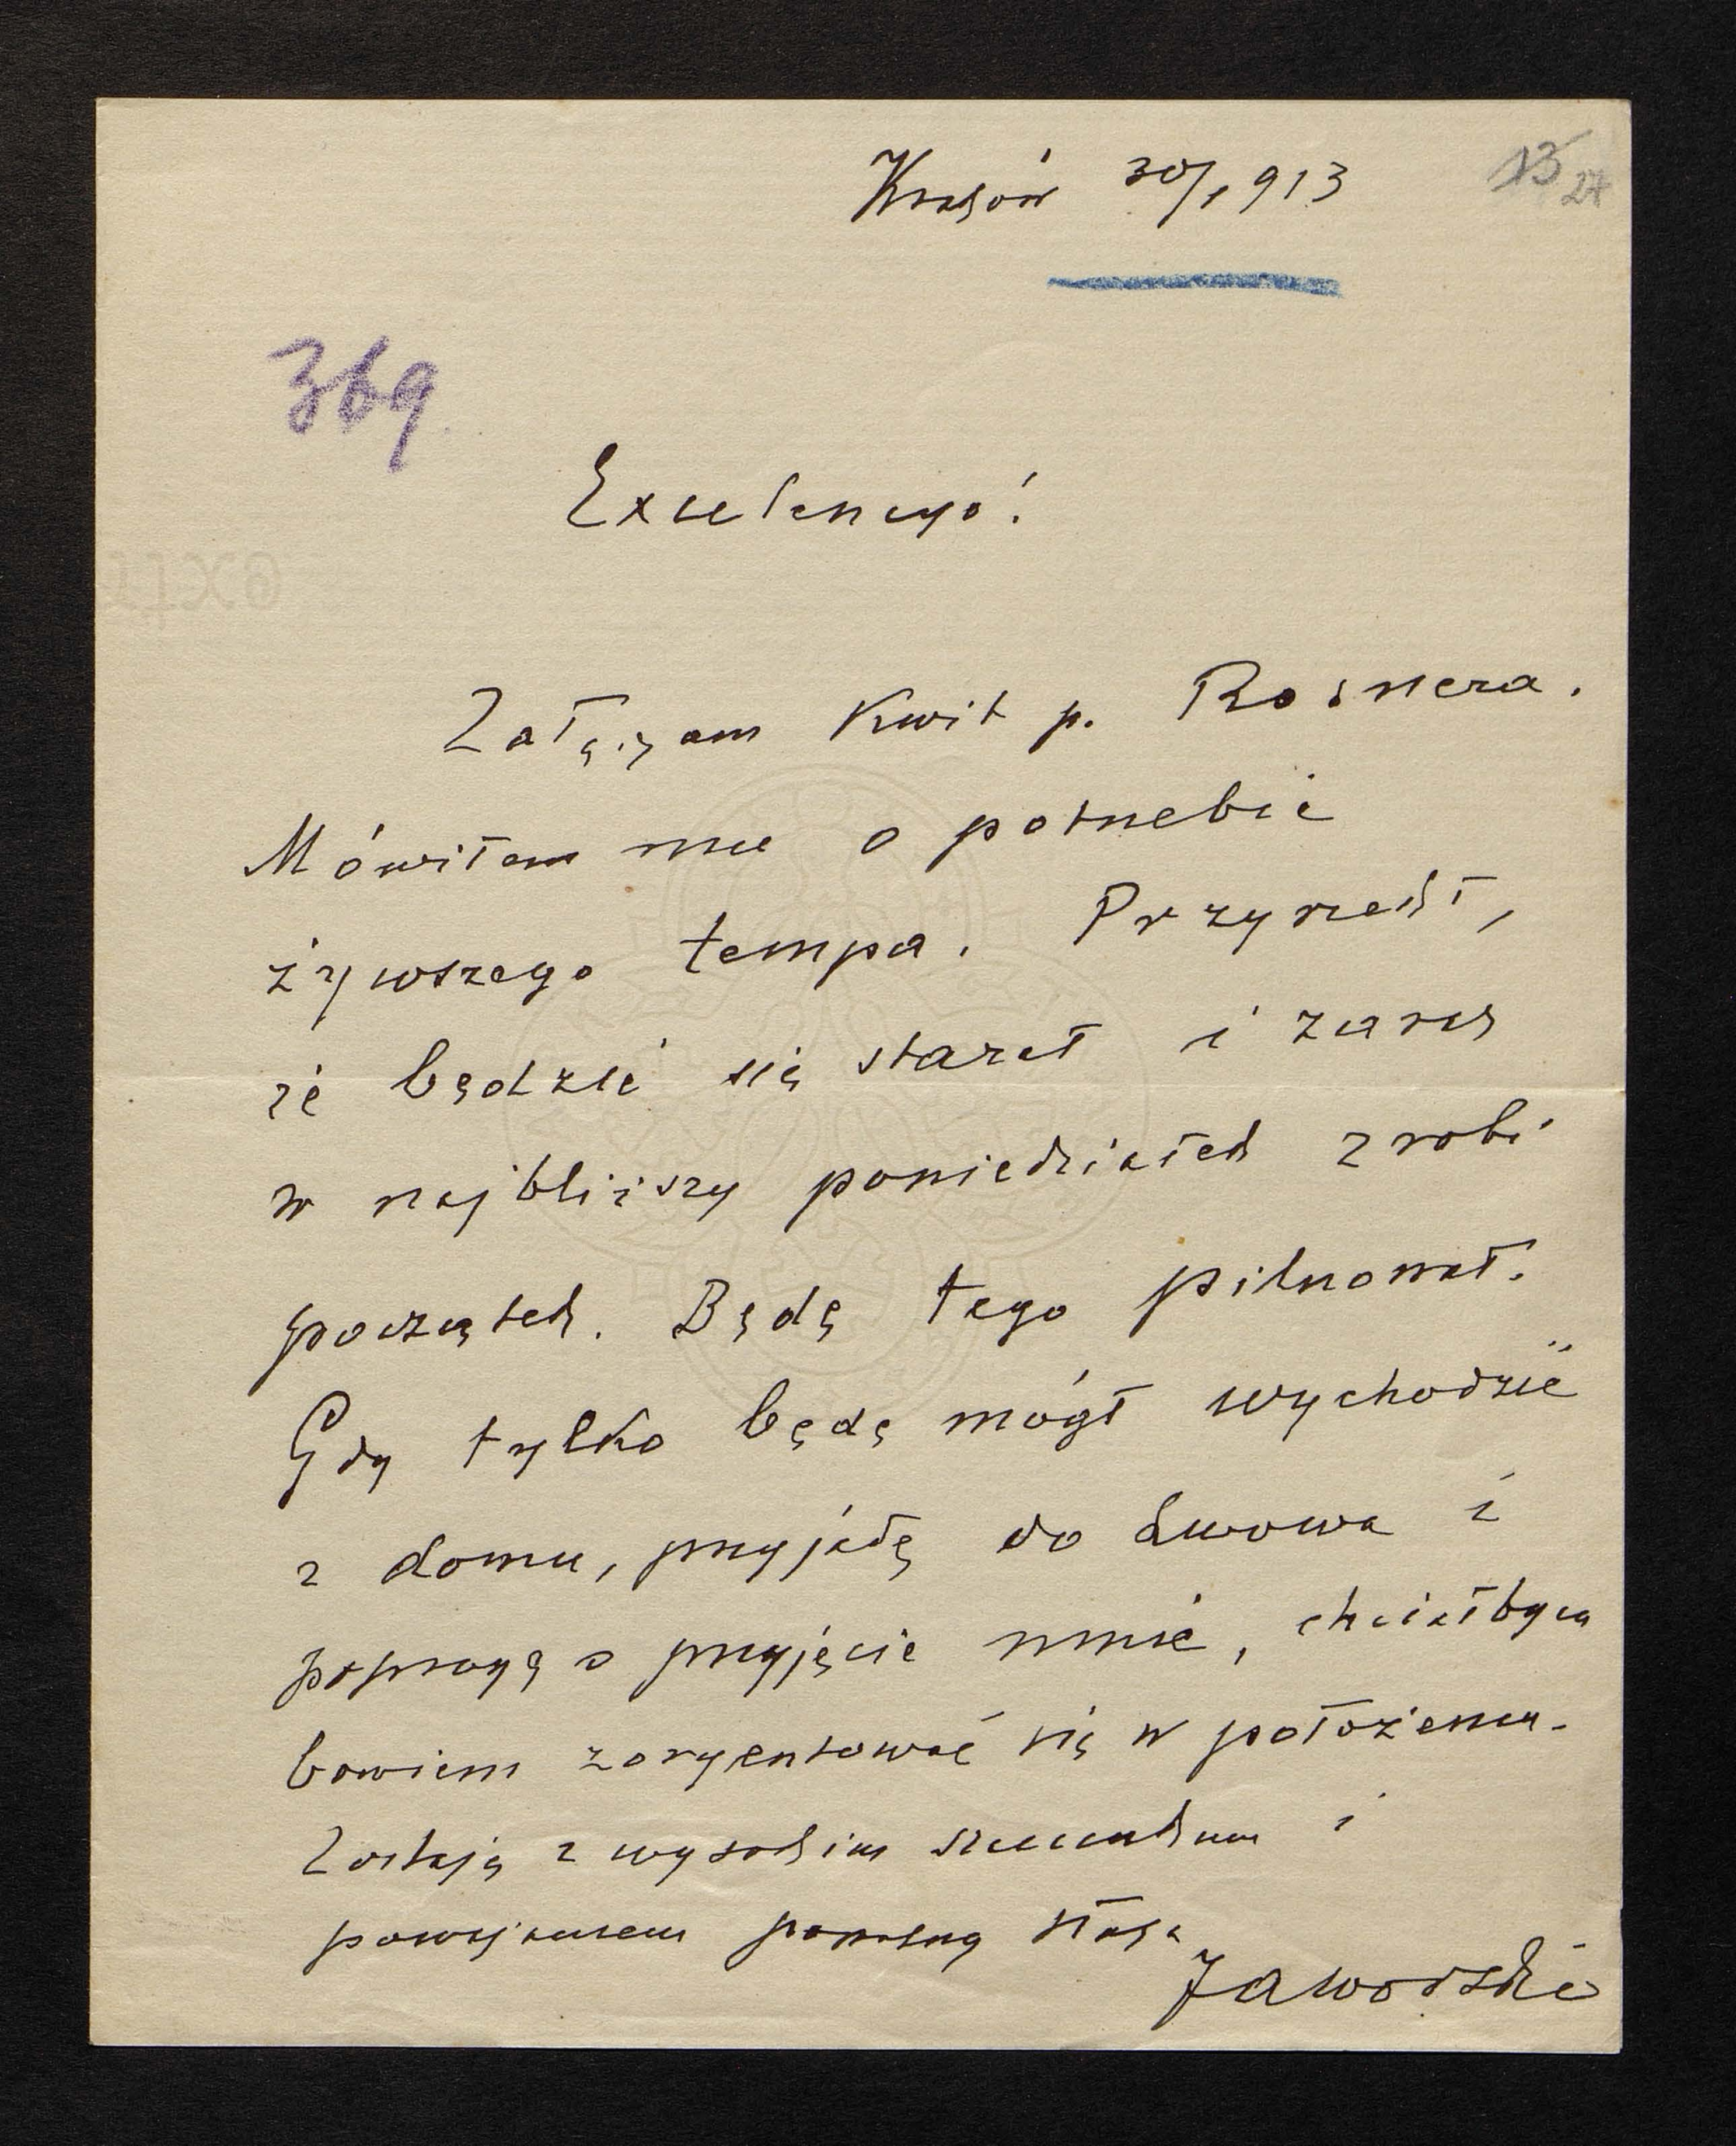 Kraków 30/1 913
13
27
369
Excelencyo!
Załączam kwit p. Rosnera.
Mówiłem mu o potrzebie
żywszego tempa. Przyrzekł,
że będzie się starał i zaraz
w najbliższy poniedziałek zrobi
początek. Będę tego pilnował.
Gdy tylko będę mógł wychodzić
z domu, przyjadę do Lwowa i
poproszę o przyjęcie mnie, chciałbym
bowiem zoryentować się w położeniu.
Zostaję z wysokim szacunkiem i
poważaniem powolny sługa
Jaworski